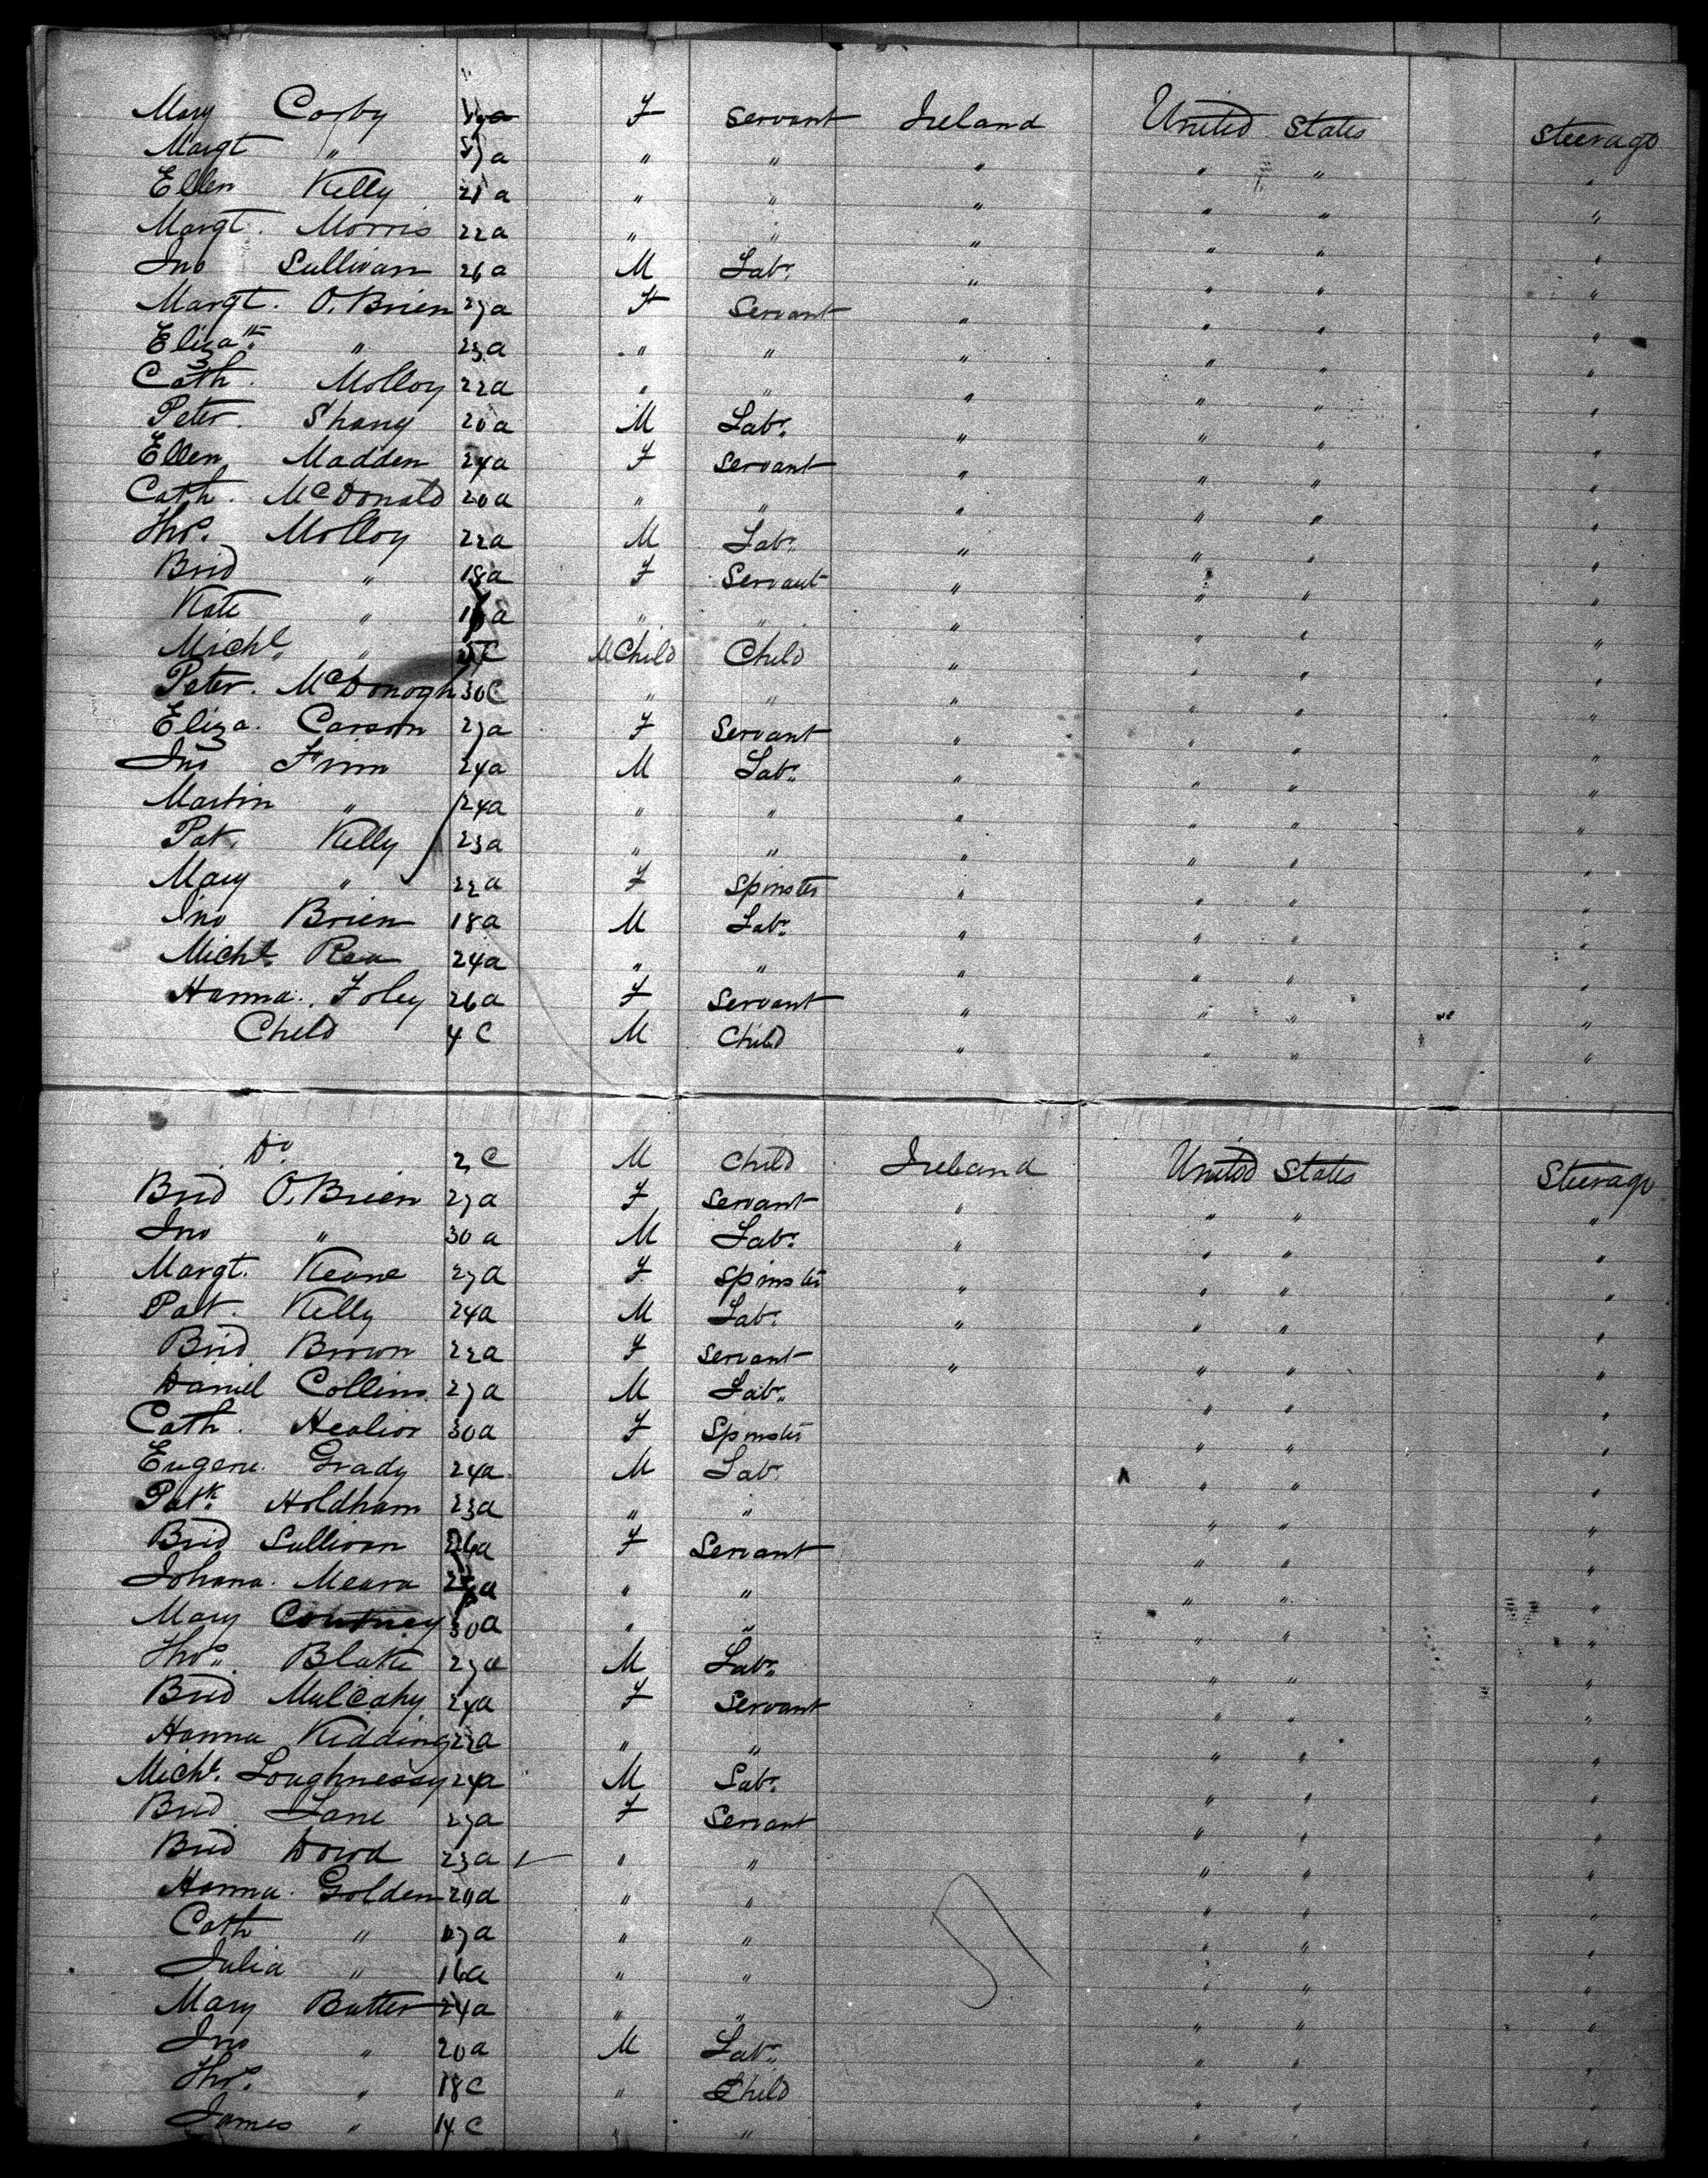 Mary Corby F Servant Ireland United States Steerage
Margt " a " " " " " "
Ellen Kelly 21 a " " " " " "
Margt. Morris 22 a " " " " " "
Jno Sullivan 26 a M Labr. " " " "
Margt. O'Brien 27 a F Servant " " " "
Elizath " 23 a " " " " " "
Cath. Molloy 22 a " " " " " "
Peter. Shany 20 a M Labr. " " " "
Ellen Madden 24 a F Servant " " " "
Cath. McDonald 20 a " " " " " "
Thos. Molloy 22 a M Labr. " " " "
Brid " 18 a F Servant " " " "
Kate " a " " " " " "
Michl. " C M Child Child " " " "
Peter. McDonogh 30 C " " " " " "
Eliza. Carson 27 a F Servant " " " "
Jno Finn 24 a M Labr. " " " "
Martin " 24 a " " " " " "
Pat. Kelly 23 a " " " " " "
Mary " 22 a F Spinster " " " "
Jno Brien 18 a M Labr. " " " "
Michl. Rea 24 a " " " " " "
Hanna. Foley 26 a F Servant " " " "
Child 4 C M Child " " " "
Do 2 C M Child Ireland United States Steerage
Brid O'Brien 27 a F Servant " " " "
Jno " 30 a M Labr. " " " "
Margt. Keane 27 a F Spinster " " " "
Pat. Kelly 24 a M Labr. " " " "
Brid Brown 22 a F Servant " " " "
Daniel Collins 27 a M Labr. " " "
Cath. Healior 30 a F Spinster " " "
Eugene. Grady 24 a M Labr. " " "
Patk. Holdham 23 a " " " " "
Brid Sullivan 26 a F Servant " " "
Johana. Meara a " " " " "
Mary Courtney 30 a " " " " "
Thos. Blake 27 a M Labr. " " "
Brid Mulcahy 24 a F Servant " " "
Hanna Kidding 22 a " " " " "
Michl. Loughnessy 24 a M Labr. " " "
Brid Lane 27 a F Servant " " "
Brid Dowd 23 a " " " " "
Hanna. Golden 20 a " " " " "
Cath " a " " " " "
Julia " 16 a " " " " "
Mary Butler 24 a " " " " "
Jno " 20 a M Labr. " " "
Thos. " 18 C " Child " " "
James " 14 C " " " " "